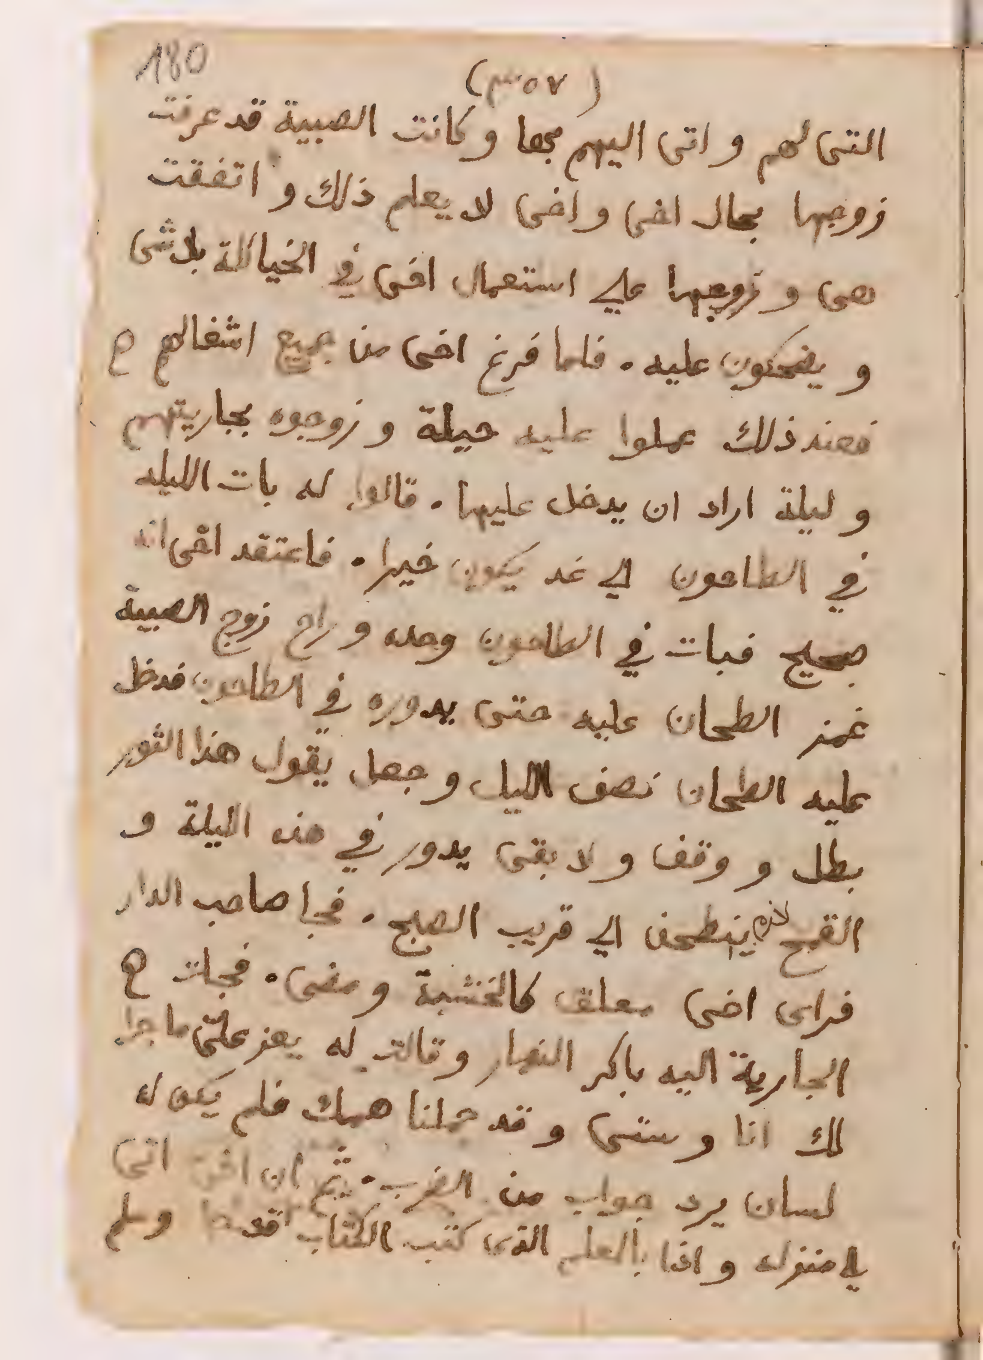 180
(٣٥٧)
التى لهم و اتى اليهم بها و كانت الصبية قد عرفت
زوجها بحال اخى و اخى لا يعلم ذلك و اتفقت
هى و زوجها على استعمال اخى في الخياطة بلاشى
و يضحكون عليه . فلما فرغ اخى من جميع اشغالهم ه
فعند ذلك عملوا عليه حيلة و زوجوه بجاريتهم
و ليلة اراد ان يدخل عليها . قالوا له بات الليله
في الطاحون الي غد يكون خيرا . فاعتقد اخى انه
صحيح فبات في الطاحون وحده و راح زوج الصبية
غمز الطحان عليه حتى يدوره في الطاحون فدخل
عليه الطحان نصف الليل و جعل يقول هذا الثور
بطل و وقف و لا بقى يدور في هذه الليلة و
القمح ينطحن الي قريب الصبح . فجا صاحب الدار
فراى اخى معلق كالخشبة و مضى . فجات ه
الجارية اليه باكر النهار و قالت له يعز علىّ ما جرا
لك انا و ستى و قد حملنا همك فلم يكن له
لسان يرد جواب من الضرب . ثم ان اخى اتى
الي منزله و اذا بالمعلم الذى كتب الكتاب قد و سلم